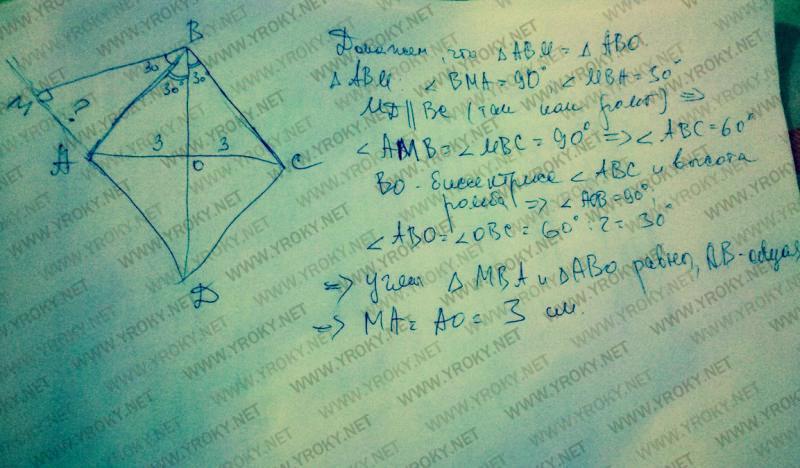 B
30 30° 30
M ?
3 3
A O C
D
Докажем, что △ABM = △ABO
△ABM. ∠BMA = 90°, ∠MBA = 30°
MD || BC (так как ромб) ⇒
∠AMB = ∠MBC = 90° ⇒ ∠ABC = 60°
BO - биссектриса ∠ABC и высота
ромба ⇒ ∠AOB = 90°,
∠ABO = ∠OBC = 60° : 2 = 30°
⇒ углы △MBA и △ABO равны, AB - общая
⇒ MA = AO = 3 см.
WWW.YROKY.NET